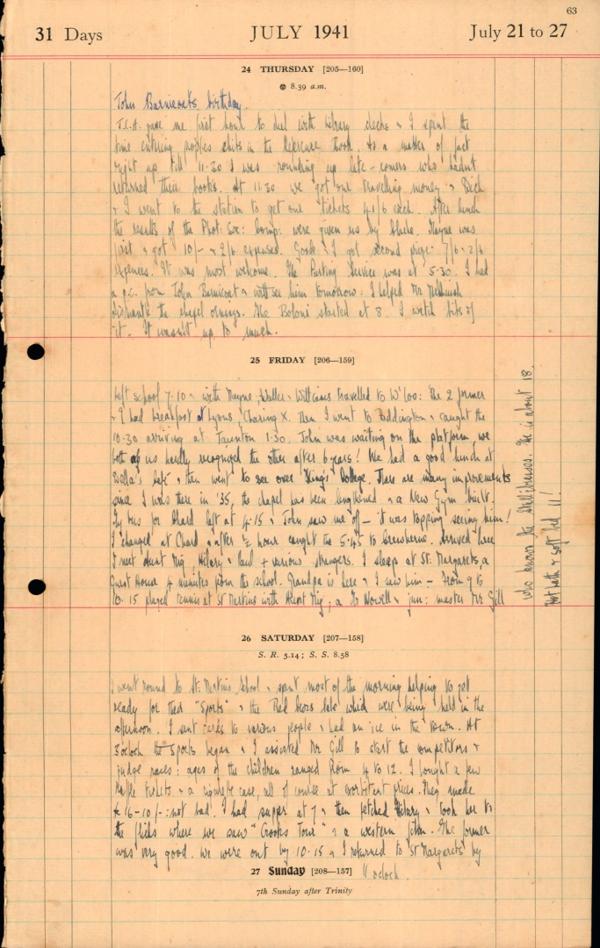 63
31 Days JULY 1941 July 21 to 27
24 THURSDAY [205—160]
8.39 a.m.
John Barnicoat's birthday.
gave me first hour to deal with library checks & I spent the
time entering peoples chits in the Reference Book. As a matter of fact
right up till 11.30 I was rounding up late-comers who hadn't
returned their books. At 11.30 we got our travelling money &
& I went to the station to get our tickets 4/6 each. After lunch
the results of the Phot: Soc: Comp: were given us by Mayne was
first & got 10/- & 2/6 expenses. I got second prize 7/6 & 2/6
expenses. It was most welcome. The Parting Service was at 5.30. I had
a p.c. from John Barnicoat & will see him tomorrow. I helped Mr
dismantle the chapel The started at 8. I watched bits of
it. It wasn't up to much.
25 FRIDAY [206—159]
Left school 7.10 & with Mayne, Waller & Williams travelled to W'loo: the 2 former
& I had breakfast at Lyons, Charing X. Then I went to Paddington & caught the
10.30 arriving at Taunton 1.30. John was waiting on the platform, we
both of us hardly recognized the other after 6 years! We had a good lunch at
& then went to see over King's College. There are many improvements
since I was there in '35, the chapel has been lengthened & a New Gym built.
My bus for Chard left at 4.15 & John saw me off – it was topping seeing him!
I changed at Chard & after ½ hour caught the 5.45 to Crewkerne. Arrived here
I meet Aunt Mig, Hilary & Paul & various strangers. I sleep at St. Margarets, a
Guest House 4 minutes from the school. Grandpa is here & I saw him – From 9 to
10.15 played tennis at St Martins with Aunt Mig, a Mr Norvell & jun: master Mr Gill
who knows the He is about 18.
Hot bath & soft bed!!
26 SATURDAY [207—158]
S. R. 5.14; S. S. 8.58
I went round to St. Martins School & spent most of the morning helping to get
ready for their "Sports" & the Red Cross Sale which were being held in the
afternoon. I sent cards to various people & had an ice in the town. At
3 o'clock the Sports began & I assisted Mr Gill to start the competitors &
judge races: ages of the children ranged from 4 to 12. I bought a few
Raffle tickets & a case, all of course at exorbitant prices. They made
£16-10/-: not bad. I had supper at 7 & then fetched Hilary & took her to
the flicks where we saw "Crooks Tour" & a western film. The former
was very good. We were out by 10.15 & I returned to St Margaret's by
11 oclock.
27 Sunday [208—157]
7th Sunday after Trinity